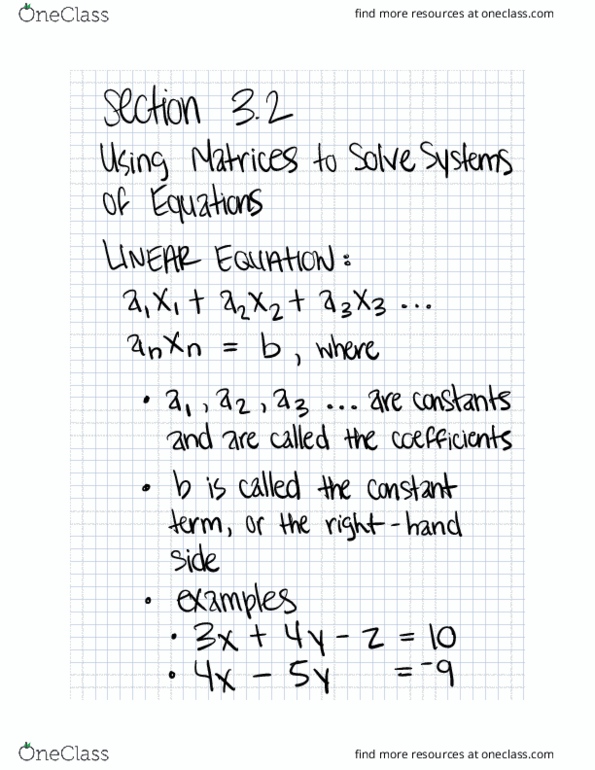 OneClass
find more resources at oneclass.com
Section 3.2
Using Matrices to Solve Systems
of Equations
LINEAR EQUATION:
a₁x₁ + a₂x₂ + a₃x₃ ...
aₙxₙ = b, where
• a₁, a₂, a₃ ... are constants
and are called the coefficients
• b is called the constant
term, or the right-hand
side
• examples
• 3x + 4y - z = 10
• 4x - 5y = -9
OneClass
find more resources at oneclass.com